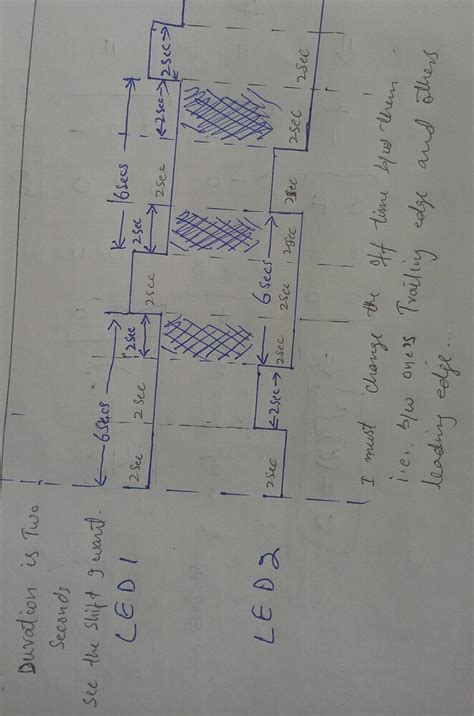 Duration is Two
Seconds
See the shift I want.
6secs 6secs
2sec 2sec 2sec 2sec
LED1
2sec 2sec 2sec 2sec
6secs
2sec
LED2
2sec 2sec 2sec 2sec 2sec 2sec 2sec
I must change the Off time b/w them
i.e.. b/w one's Trailing edge and others
leading edge...